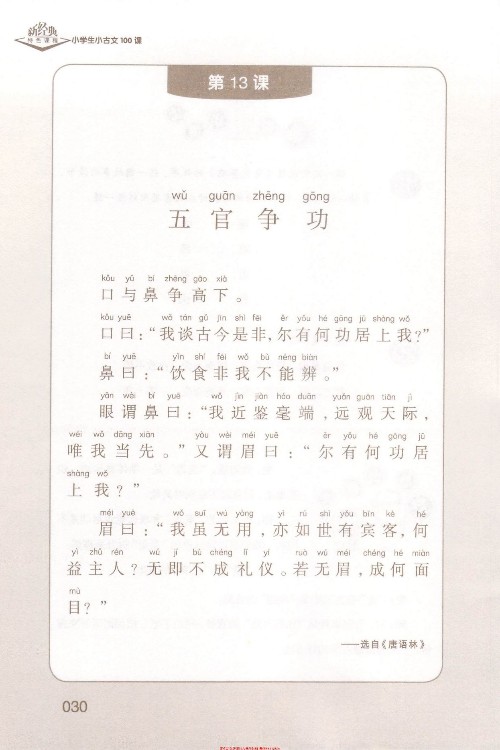 新经典
特色课程
小学生小古文100课
第13课
wǔ guān zhēng gōng
五官争功
kǒu yǔ bí zhēng gāo xià
口与鼻争高下。
kǒu yuē wǒ tán gǔ jīn shì fēi ěr yǒu hé gōng jū shàng wǒ
口曰：“我谈古今是非，尔有何功居上我？”
bí yuē yǐn shí fēi wǒ bù néng biàn
鼻曰：“饮食非我不能辨。”
yǎn wèi bí yuē wǒ jìn jiàn háo duān yuǎn guān tiān jì
眼谓鼻曰：“我近鉴毫端，远观天际，
wéi wǒ dāng xiān yòu wèi méi yuē ěr yǒu hé gōng jū
唯我当先。”又谓眉曰：“尔有何功居
shàng wǒ
上我？”
méi yuē wǒ suī wú yòng yì rú shì yǒu bīn kè hé
眉曰：“我虽无用，亦如世有宾客，何
yì zhǔ rén wú jí bù chéng lǐ yí ruò wú méi chéng hé miàn
益主人？无即不成礼仪。若无眉，成何面
mù
目？”
——选自《唐语林》
030